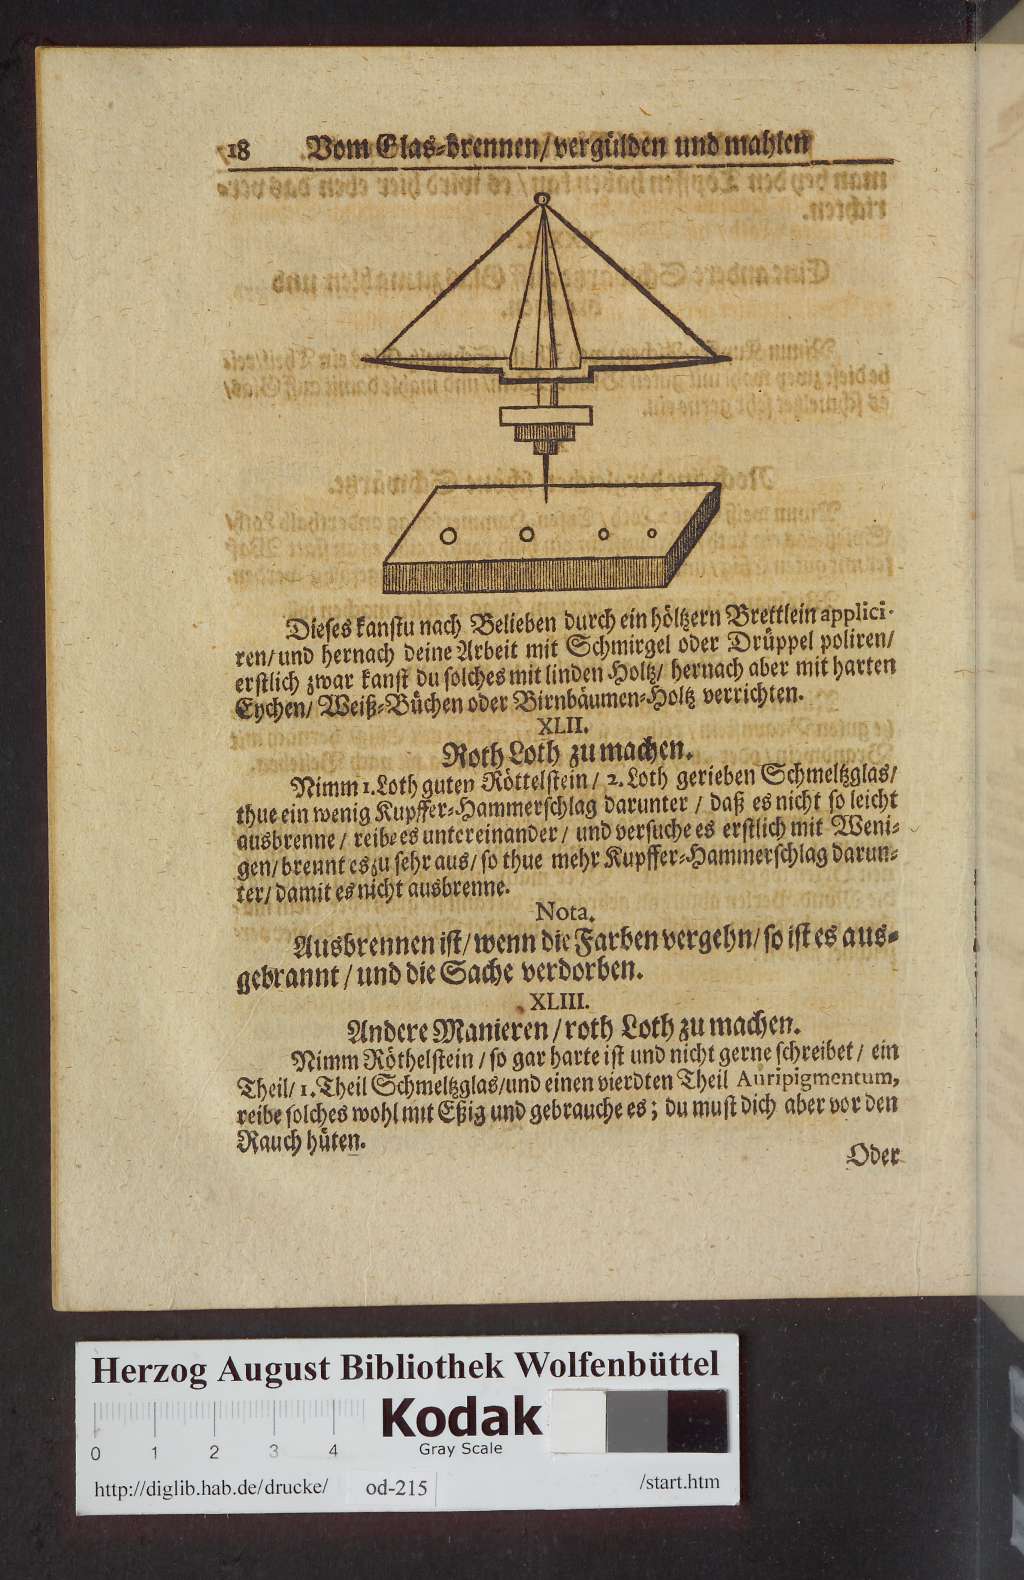 18 Vom Glas-brennen/ vergülden und mahlen
Dieses kanstu nach Belieben durch ein höltzern Brettlein applici-
ren/ und hernach deine Arbeit mit Schmirgel oder Drüppel poliren/
erstlich zwar kanst du solches mit linden Holtz/ hernach aber mit harten
Eychen/ Weiß-Büchen oder Birnbäumen-Holtz verrichten.
XLII.
Roth Loth zu machen.
Nimm 1. Loth guten Röttelstein/ 2. Loth gerieben Schmeltzglas/
thue ein wenig Kupffer-Hammerschlag darunter/ daß es nicht so leicht
ausbrenne/ reibe es untereinander/ und versuche es erstlich mit Weni-
gen/ brennt es zu sehr aus/ so thue mehr Kupffer-Hammerschlag darun-
ter/ damit es nicht ausbrenne.
Nota.
Ausbrennen ist/ wenn die Farben vergehn/ so ist es aus-
gebrannt/ und die Sache verdorben.
XLIII.
Andere Manieren/ roth Loth zu machen.
Nimm Röthelstein/ so gar harte ist und nicht gerne schreibet/ ein
Theil/ 1. Theil Schmeltzglas/ und einen vierdten Theil Auripigmentum,
reibe solches wohl mit Eßig und gebrauche es; du must dich aber vor den
Rauch hüten.
Oder
Herzog August Bibliothek Wolfenbüttel
Kodak
Gray Scale
0 1 2 3 4
http://diglib.hab.de/drucke/ od-215 /start.htm